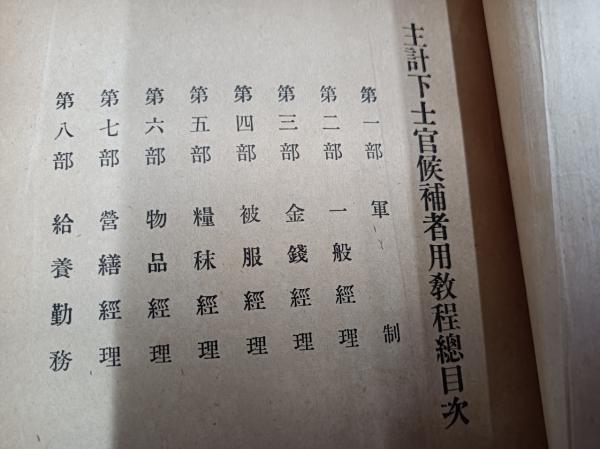 主計下士官候補者用教程總目次
第一部 軍制
第二部 一般經理
第三部 金錢經理
第四部 被服經理
第五部 糧秣經理
第六部 物品經理
第七部 營繕經理
第八部 給養勤務